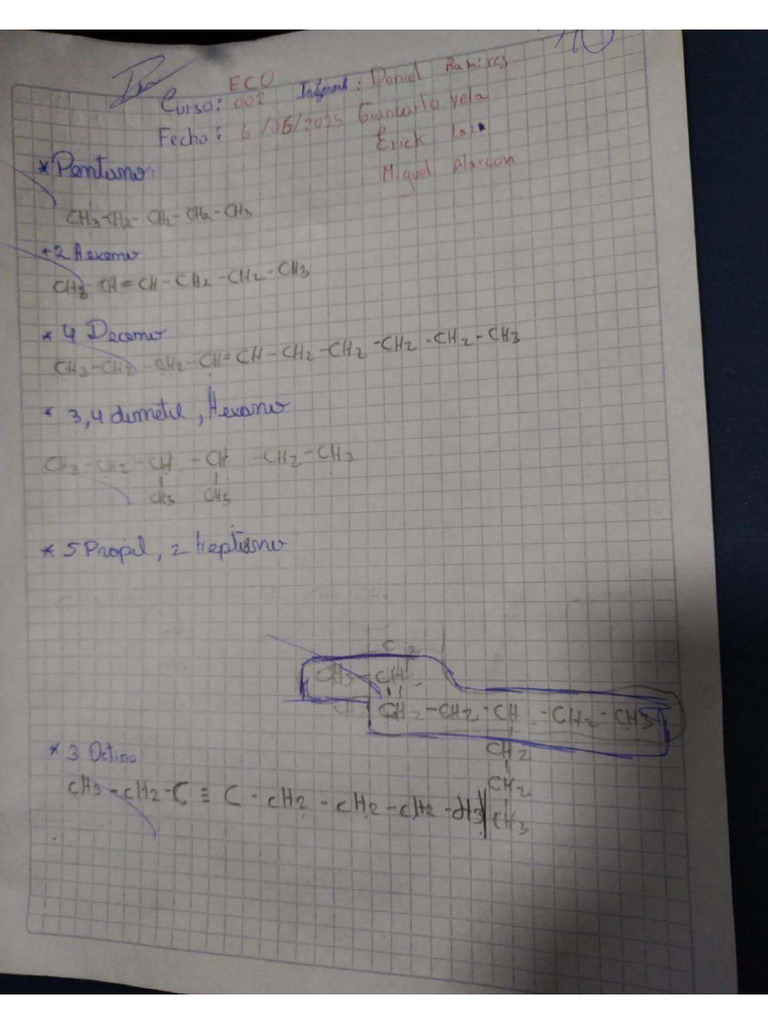 10
ECO
Curso: 002 Integrant: Daniel Ramirez
Fecha: 6/06/2025 Giancarlo yela
Erick
Miguel Alarcon
* Pentano:
CH3-CH2-CH2-CH2-CH3
* 2 Hexeno
CH3-CH=CH-CH2-CH2-CH3
* 4 Deceno
CH3-CH2-CH2-CH=CH-CH2-CH2-CH2-CH2-CH3
* 3,4 dimetil, Hexano
CH3-CH2-CH-CH-CH2-CH3
CH3 CH3
* 5 Propil, 2 hepteno
CH3-CH
CH2-CH2-CH-CH2-CH3
CH2
CH2
CH3
* 3 Octino
CH3-CH2-C≡C-CH2-CH2-CH2-CH3